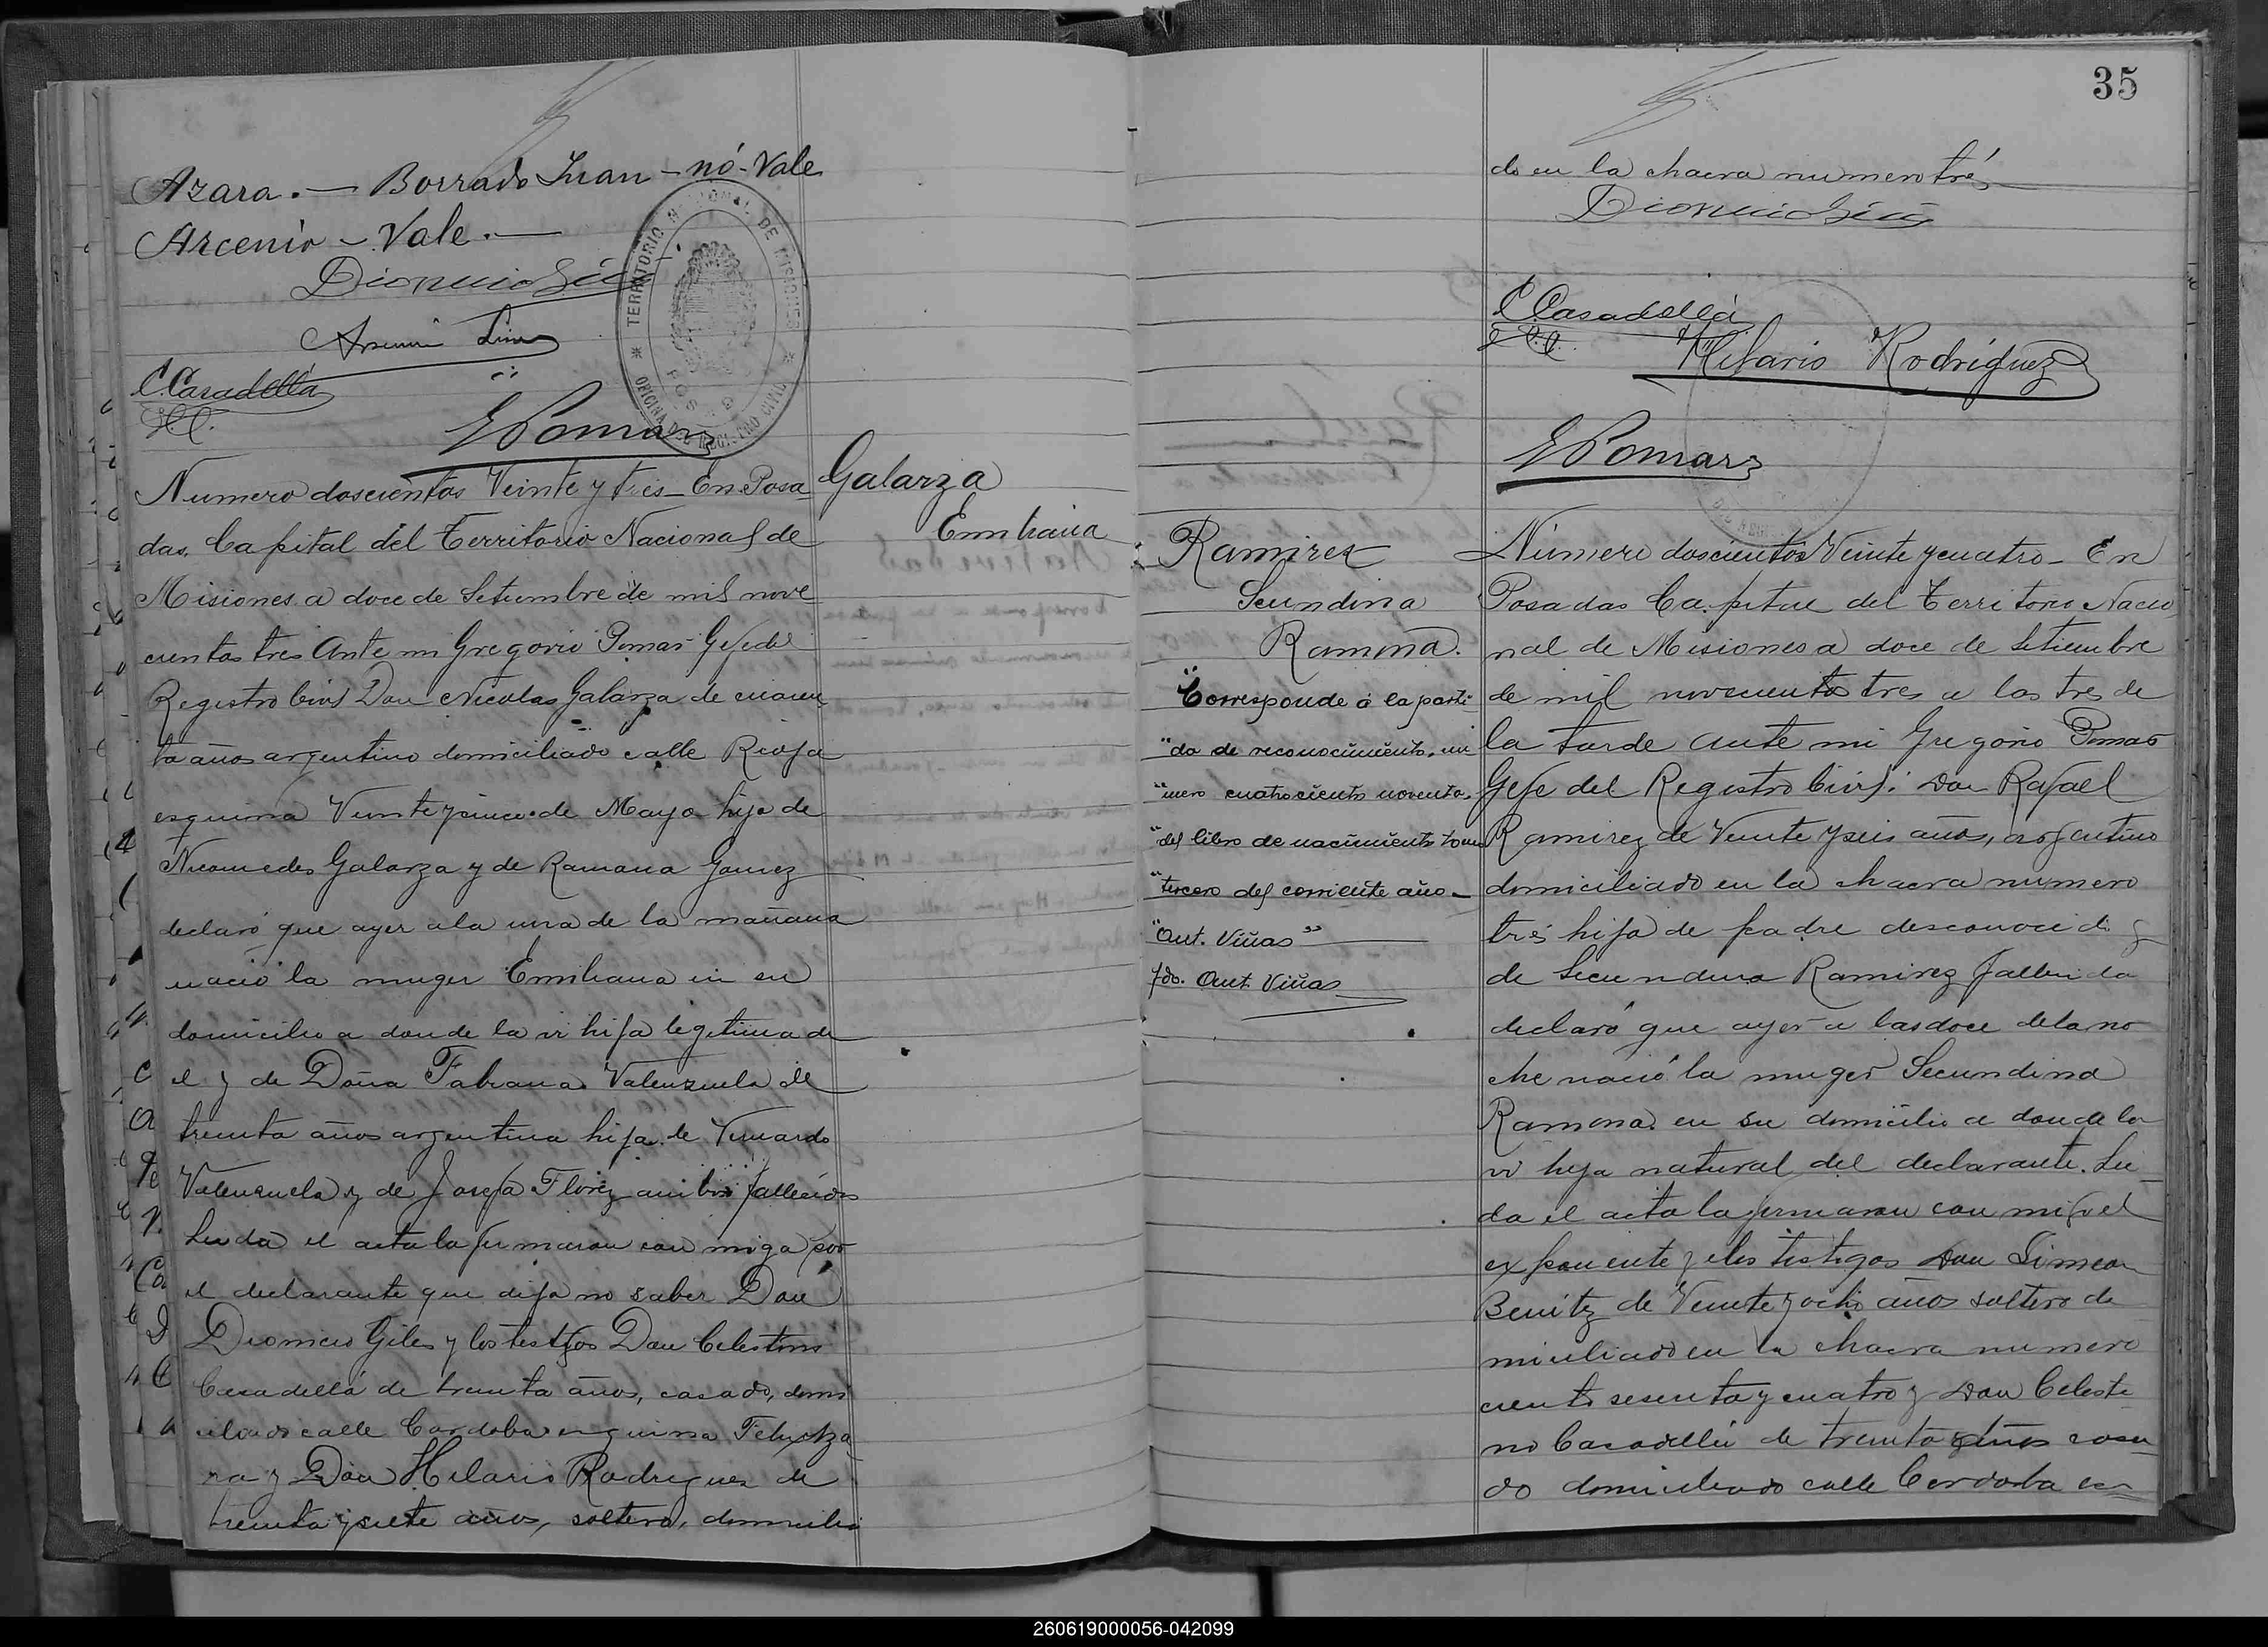 Azara.— Borrado Juan - nó - Vale
Arcenio - Vale.—
Dionicio Giles
TERRITORIO NACIONAL DE MISIONES
OFICINA DEL REGISTRO CIVIL
C. Casadellá
GPomar
Numero doscientos Veinte y tres - En Posa
das. Capital del Territorio Nacional de
Misiones a doce de Setiembre de mil nove
cientos tres Ante mi Gregorio Pomar Gefe del
Registro Civil Don Nicolas Galarza de cuaren
ta años argentino domiciliado calle Rioja
esquina Veinte y cinco de Mayo hijo de
Nicomedes Galarza y de Ramona Gomez
declaró que ayer a la una de la mañana
nació la muger Emiliana en su
domicilio a donde la vi hija legitima de
el y de Doña Fabiana Valenzuela de
treinta años argentina hija de Vernardo
Valenzuela y de Josefa Florez ambos fallecidos
Leida el acta la firmaron con migo por
el declarante que dijo no saber Don
Dionicio Giles y los testigos Don Celestino
Casadellá de treinta años, casado, domi
ciliado calle Cordoba esquina Felix Aza
ra y Don Hilario Rodriguez de
treinta y siete años, soltero, domicilia
Galarza
Emiliana
35
do en la chacra numero trés
Dionicio Giles
C. Casadellá
Hilario Rodríguez
GPomar
Ramirez
Secundina
Ramona.
"Corresponde á la parti-
"da de reconocimiento, nú
"mero cuatrocientos noventa,
"del libro de nacimientos tomo
"tercero del corriente año -
"Ant. Viñas"
fdo. Ant. Viñas
Número doscientos Veinte y cuatro - En
Posadas Capital del Territorio Nacio
nal de Misiones a doce de Setiembre
de mil novecientos tres a las tres de
la tarde ante mi Gregorio Pomar
Gefe del Registro Civil: Don Rafael
Ramirez de Veinte y seis años, argentino
domiciliado en la chacra numero
trés hijo de padre desconocido y
de Secundina Ramirez fallecida
declaró que ayer a las doce de la no
che nació la muger Secundina
Ramona en su domicilio a donde la
vi hija natural del declarante. Lei
da el acta la firmaron con migo el
exponente y los testigos Don Simeon
Benitez de Veinte y ocho años soltero do
miciliado en la chacra numero
ciento sesenta y cuatro y Don Celesti
no Casadellá de treinta años casa
do domiciliado calle Cordoba es
260619000056-042099